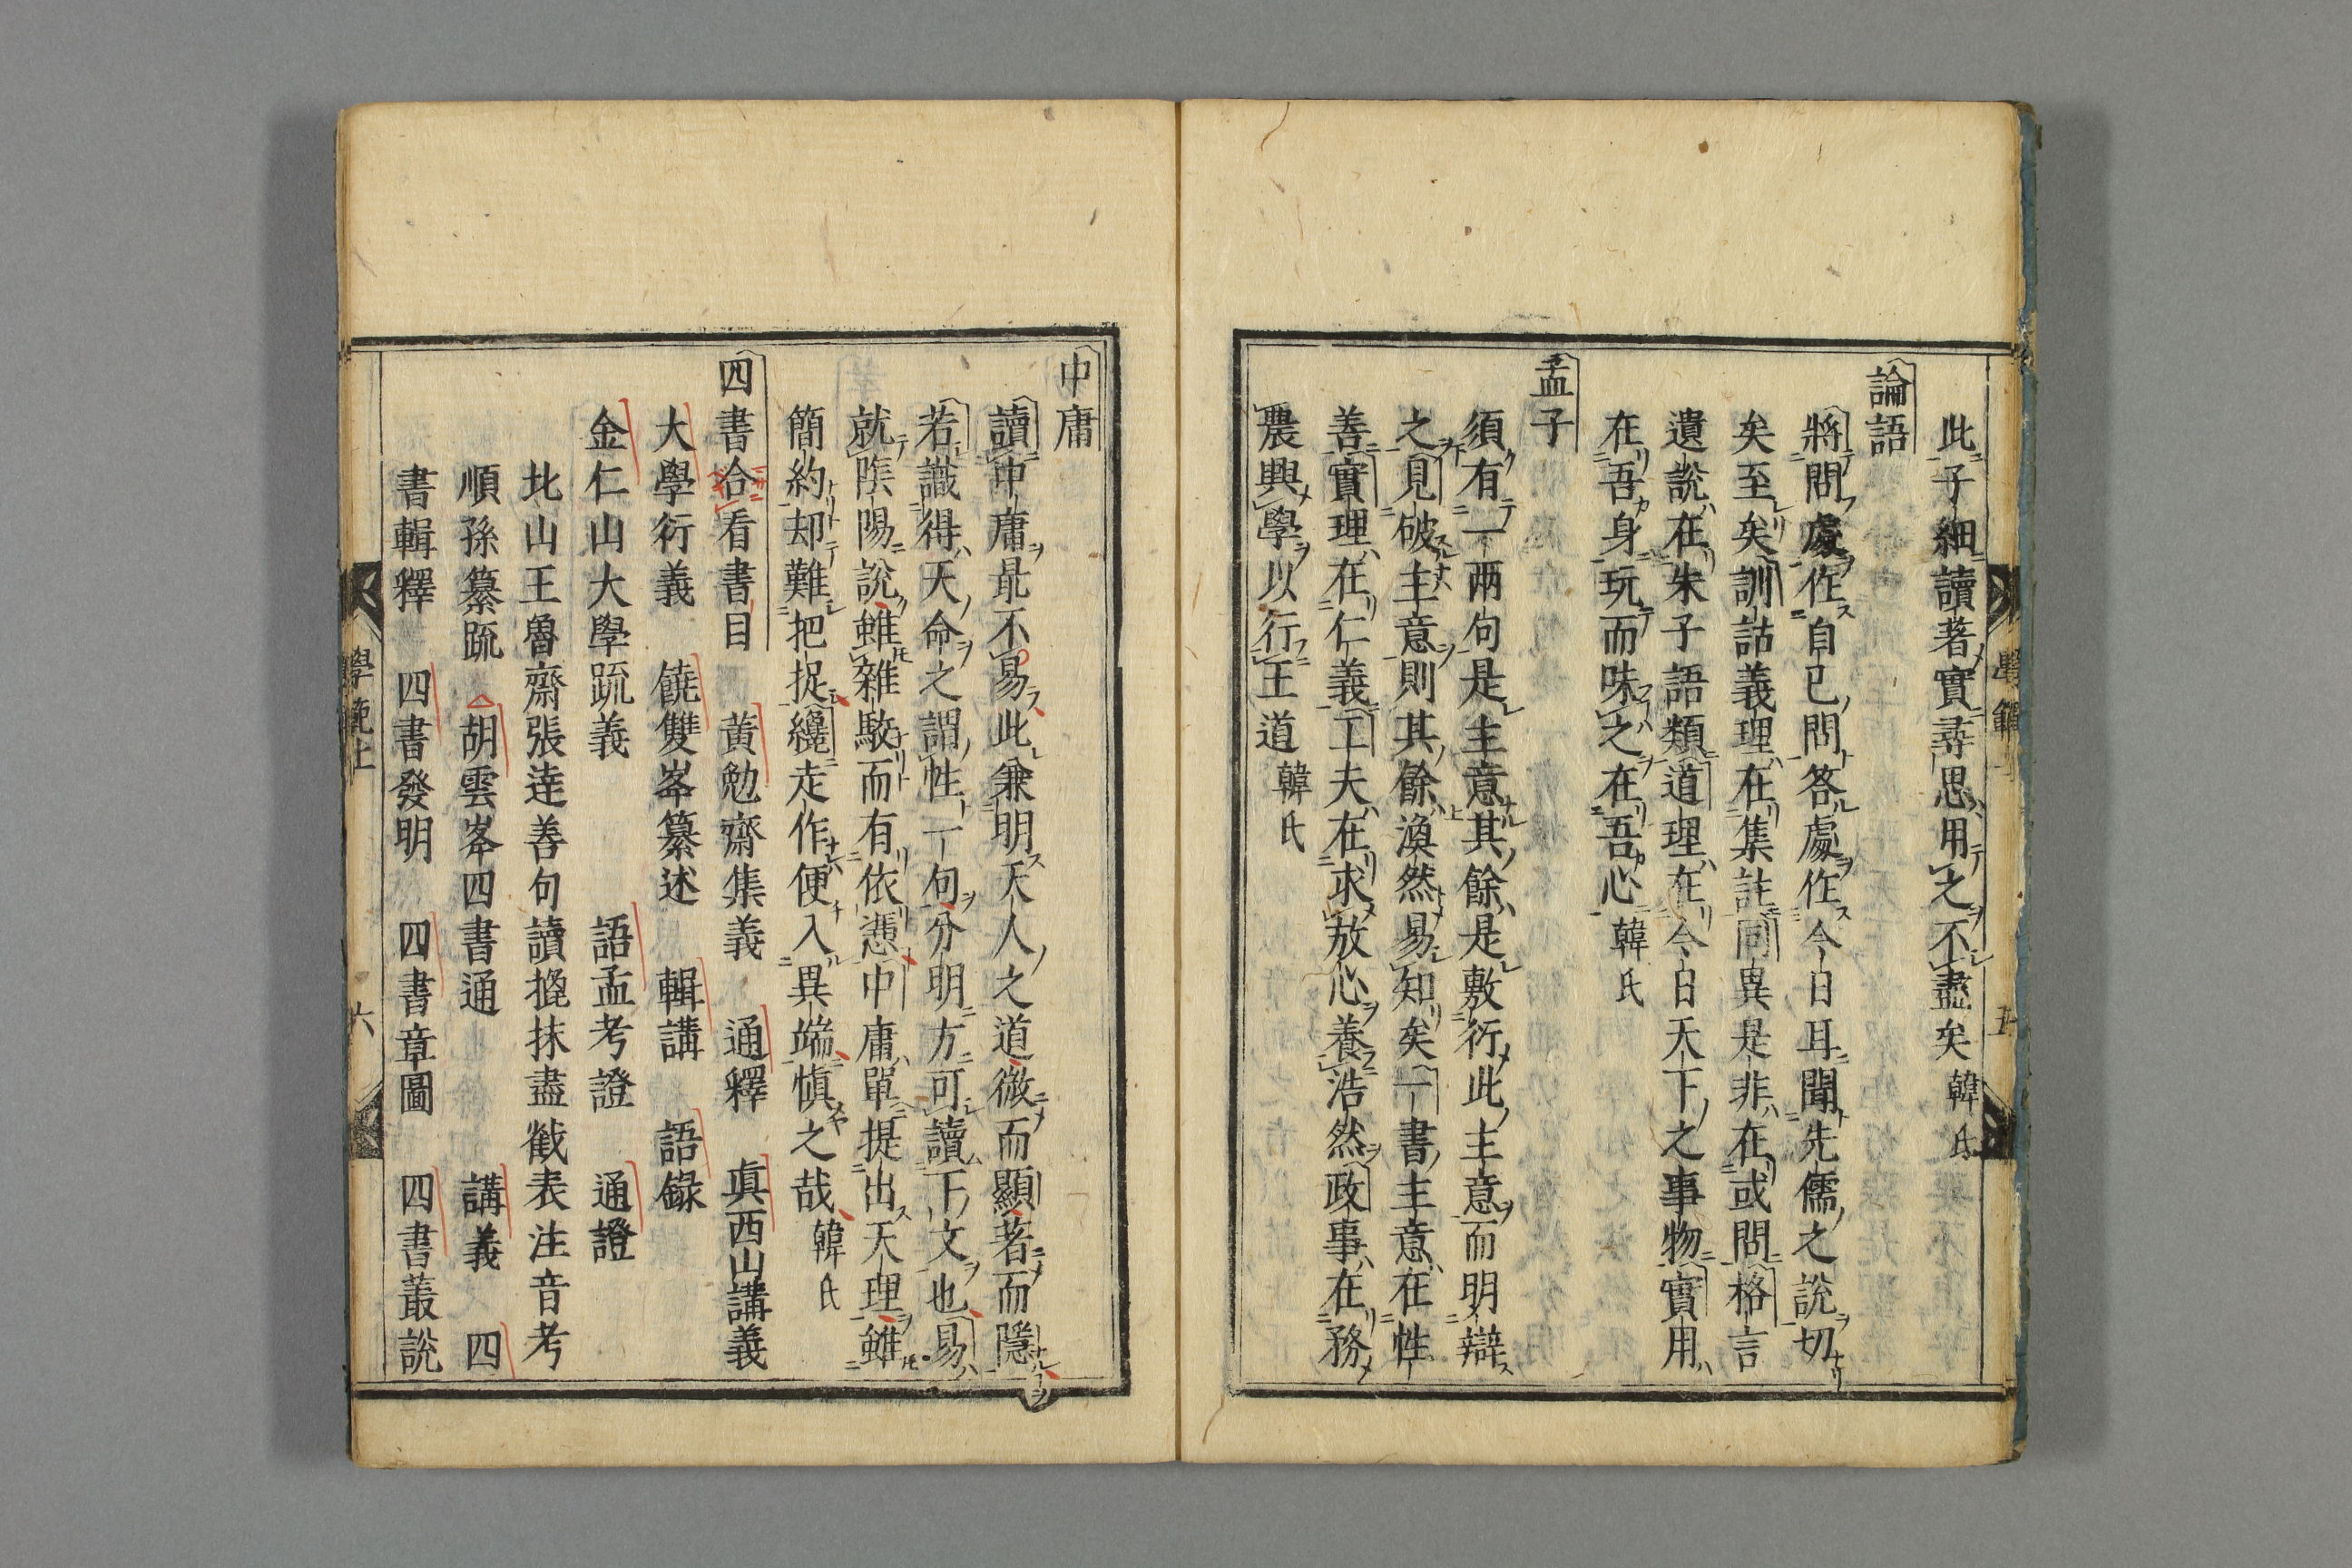 此子細讀著實尋思用之不盡矣韓氏
論語
將問處作自己問答處作今日耳聞先儒之說切
矣至矣訓詁義理在集註同異是非在或問格言
遺說在朱子語類道理在今日天下之事物實用
在吾身玩而味之在吾心韓氏
孟子
須有一兩句是主意其餘是敷衍此主意而明辯
之見破主意則其餘渙然易知矣一書主意在性
善實理在仁義工夫在求放心養浩然政事在務
農興學以行王道韓氏
中庸
讀中庸最不易此兼明天人之道微而顯著而隱
若識得天命之謂性一句分明方可讀下文也易
就陰陽說雖雜駁而有依憑中庸單提出天理雖
簡約却難把捉纔走作便入異端愼之哉韓氏
四書合看書目
大學衍義 饒雙峯纂述 輯講 語錄
黃勉齋集義 通釋 眞西山講義
金仁山大學疏義 語孟考證 通證
北山王魯齋張達善句讀㧾抹畫截表注音考
順孫纂疏 胡雲峯四書通 講義 四
書輯釋 四書發明 四書章圖 四書叢說
學範上 六